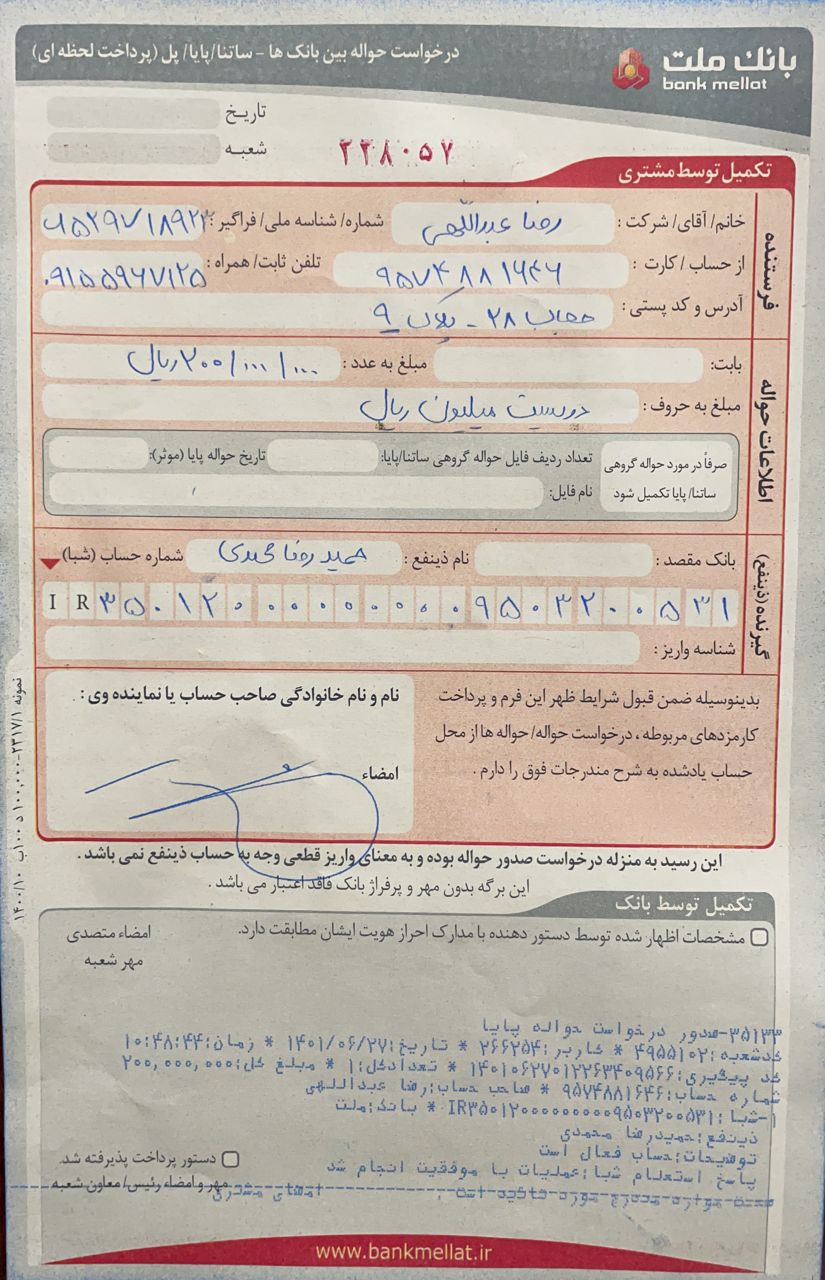 بانک ملت
bank mellat
درخواست حواله بین بانک ها - ساتنا/پایا/ پل (پرداخت لحظه ای)
تاریخ
شعبه
۲۲۸۰۵۷
تکمیل توسط مشتری
فرستنده
خانم/ آقای/ شرکت : رضا عبداللهی شماره/ شناسه ملی/ فراگیر : ۶۵۲۹۷۱۸۹۲۳
از حساب / کارت : ۹۵۷۴۸۸۱۶۴۶ تلفن ثابت/ همراه : ۰۹۱۵۵۹۶۷۱۲۵
آدرس و کد پستی : ۲۸ - پلاک ۹
اطلاعات حواله
بابت: مبلغ به عدد : ۲۰۰/۰۰۰/۰۰۰ ریال
مبلغ به حروف : دویست میلیون ریال
صرفاً در مورد حواله گروهی
ساتنا/ پایا تکمیل شود
تعداد ردیف فایل حواله گروهی ساتنا/پایا: تاریخ حواله پایا (موثر):
نام فایل:
گیرنده (ذینفع)
بانک مقصد : نام ذینفع : حمید رضا محمدی شماره حساب (شبا)
IR۳۵۰۱۲۰۰۰۰۰۰۰۰۰۰۹۵۰۳۲۰۰۵۳۱
شناسه واریز :
بدینوسیله ضمن قبول شرایط ظهر این فرم و پرداخت
کارمزدهای مربوطه ، درخواست حواله/ حواله ها از محل
حساب یادشده به شرح مندرجات فوق را دارم .
نام و نام خانوادگی صاحب حساب یا نماینده وی :
امضاء
این رسید به منزله درخواست صدور حواله بوده و به معنای واریز قطعی وجه به حساب ذینفع نمی باشد .
این برگه بدون مهر و پرفراژ بانک فاقد اعتبار می باشد .
نمونه ۲۳۱۷/۱-۱۰۰,۰۰۰ د ۱۰۰ ب ۱۴۰۰/۱۰
تکمیل توسط بانک
مشخصات اظهار شده توسط دستور دهنده با مدارک احراز هویت ایشان مطابقت دارد.
امضاء متصدی
مهر شعبه
۳۵۱۳۳-صدور درخواست حواله پایا
کدشعبه:۴۹۵۵۱۰۲ * کاربر:۲۶۶۲۵۴ * تاریخ:۱۴۰۱/۰۶/۲۷ * زمان:۱۰:۴۸:۴۴
کد پیگیری:۱۴۰۱۰۶۲۷۰۱۲۲۶۳۴۰۹۵۶۶ * تعدادکل:۱ * مبلغ کل:۲۰۰,۰۰۰,۰۰۰
شماره حساب:۹۵۷۴۸۸۱۶۴۶ * صاحب حساب:رضا عبداللهی
۱-شبا:IR۳۵۰۱۲۰۰۰۰۰۰۰۰۰۰۹۵۰۳۲۰۰۵۳۱ * بانک:ملت
ذینفع:حمیدرضا محمدی
توضیحات:حساب فعال است
پاسخ استعلام شبا:عملیات با موفقیت انجام شد
صحت موارد مندرج مورد تائید است : امضای مشتری
دستور پرداخت پذیرفته شد.
مهر و امضاء رئیس/ معاون شعبه
www.bankmellat.ir